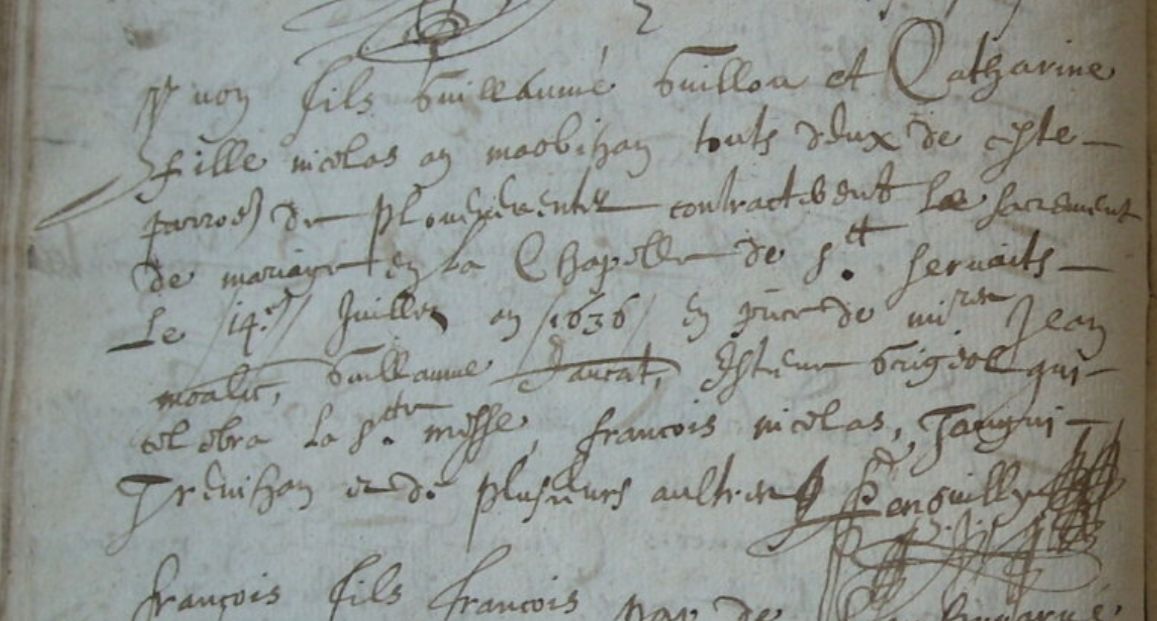 Yvon fils Guillaume Guillou et Catharine
fille nicolas an maobihan touts deux de ceste
parroes de contracterent le sacrement
de mariage en la Chapelle de s.ct servaits
Le /14.e/ Juillet an /1636/ en pñce de mi Jean
moalic, Guillaume Daucat, Estienne qui
celebra la s.cte messe, francois nicolas, Tangui
Trevihan et de plusieurs aultres
françois fils francois de